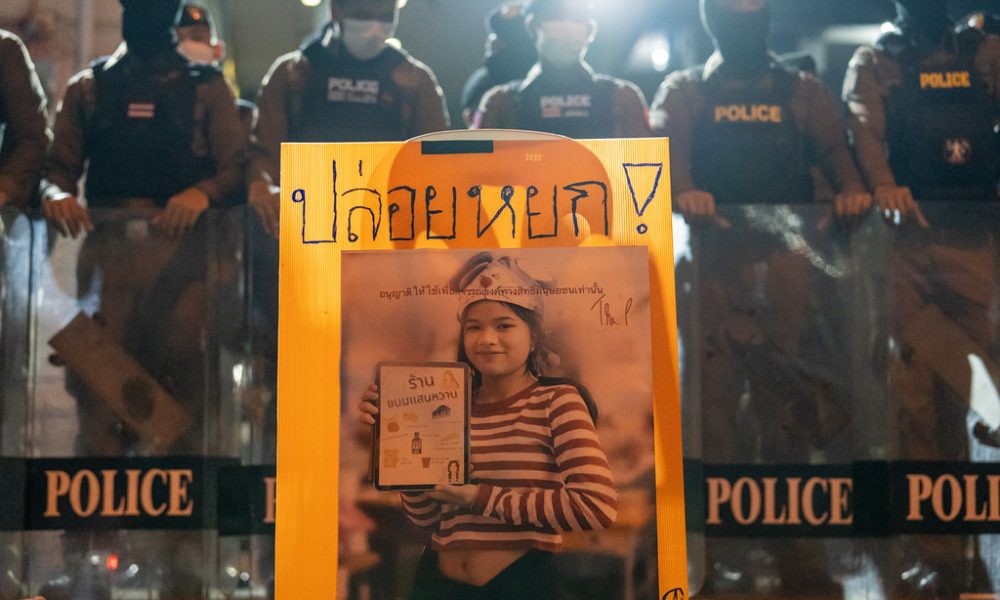 POLICE
POLICE
POLICE
POLICE
ปล่อยหยก!
อนุญาติให้ใช้เพื่อ
ร้าน
ขนมแสนหวาน
POLICE
POLICE